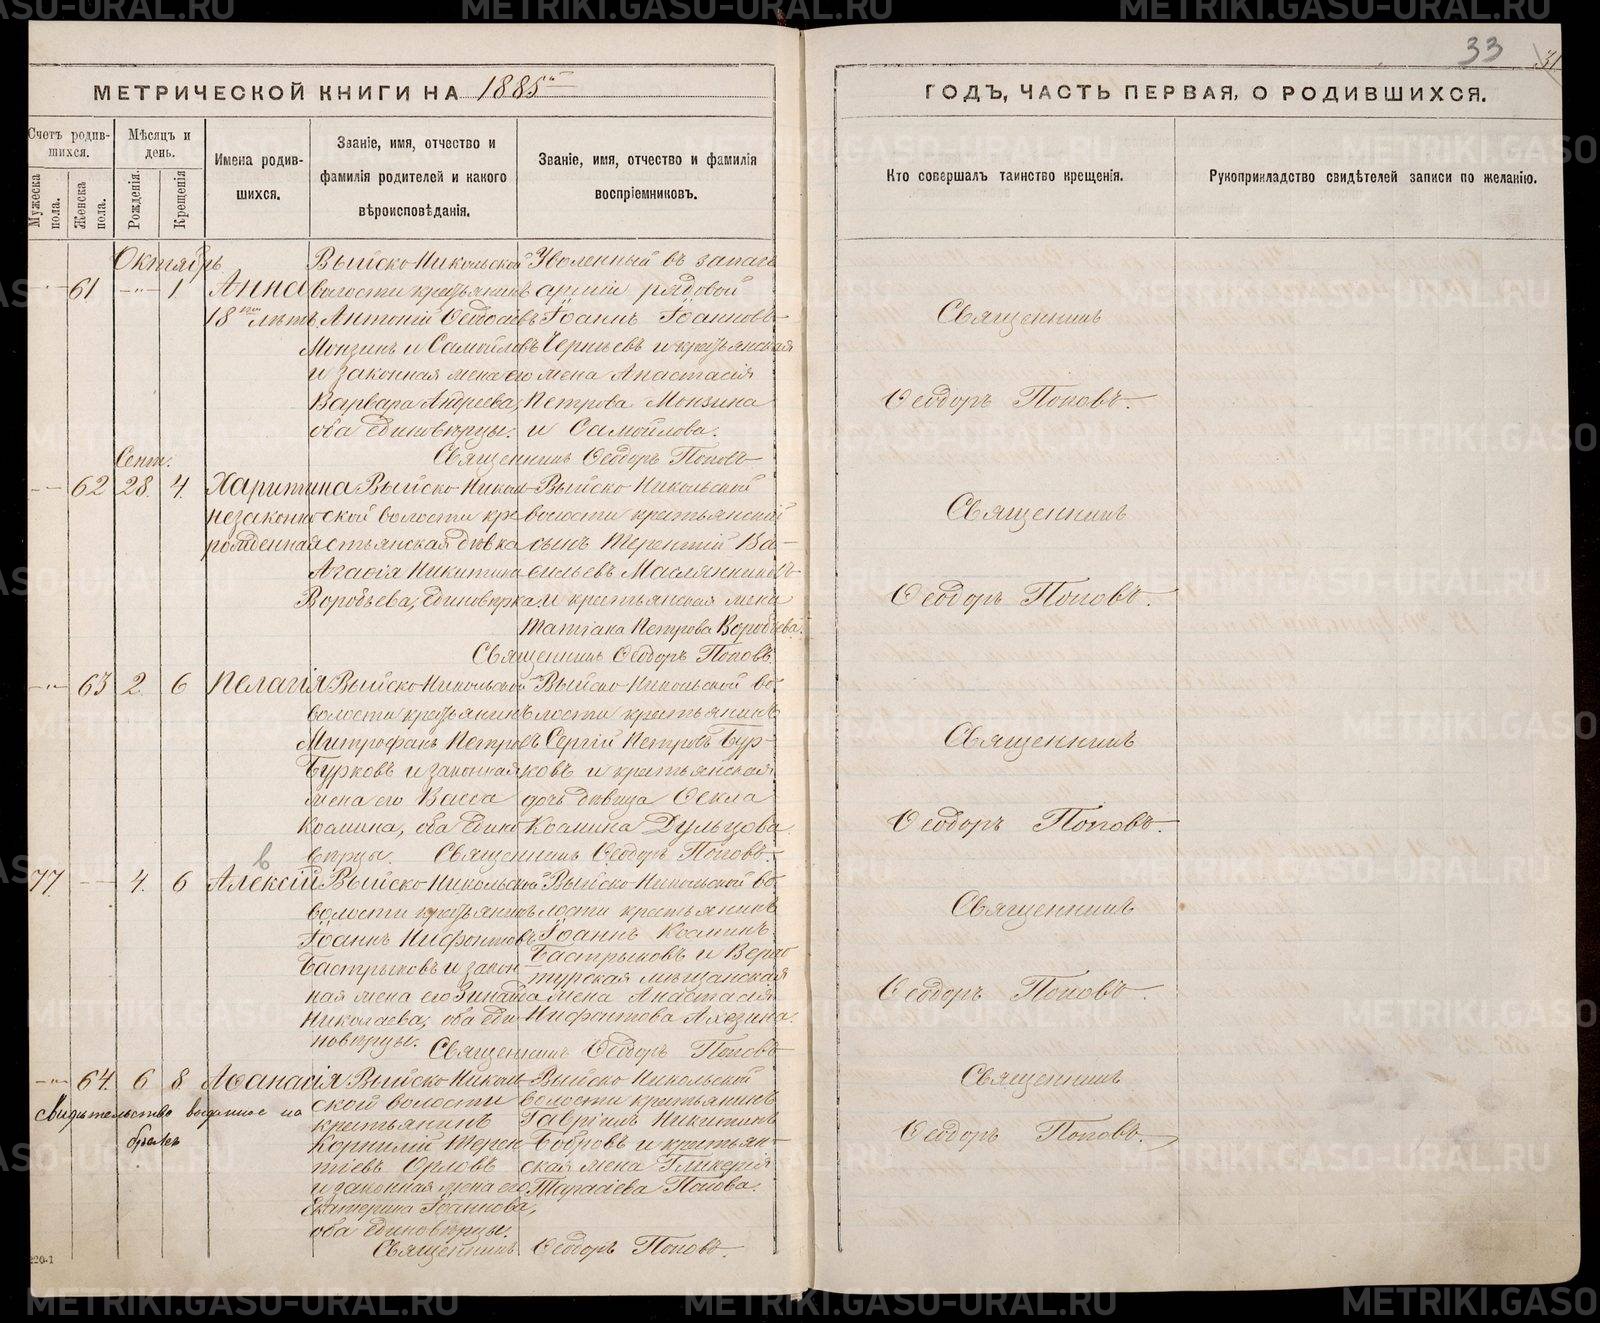 33
31
МЕТРИЧЕСКОЙ КНИГИ НА 1885
ГОДЪ, ЧАСТЬ ПЕРВАЯ, О РОДИВШИХСЯ.
Счетъ родив-
шихся.
Мужеска пола.
Женска пола.
Мѣсяцъ и
день.
Рожденія.
Крещенія
Имена родив-
шихся.
Званіе, имя, отчество и
фамилія родителей и какого
вѣроисповѣданія.
Званіе, имя, отчество и фамилія
воспріемниковъ.
Кто совершалъ таинство крещенія.
Рукоприкладство свидѣтелей записи по желанію.
Октябрь
61 1 Анна
18 лѣтъ
Выйско-Никольской
волости крестьянинъ
Антоній Ѳедосѣевъ
Монзинъ и Самойловъ
и законная жена его
Варвара Андреева,
оба единовѣрцы.
Уволенный въ запасъ
арміи рядовой
Іоаннъ Іоанновъ
и крестьянская
жена Анастасія
Петрова Монзина
и Самойлова.
Священникъ Ѳеодоръ Поповъ
Священникъ
Ѳеодоръ Поповъ.
Сент.
62 28. 4. Харитина
незаконно
рожденная
Выйско-Николь-
ской волости кре-
стьянская дѣвка
Агафія Никитина
Воробьева, единовѣрка
Выйско-Никольской
волости крестьянскій
сынъ Терентій Ва-
сильевъ Маслянниковъ
и крестьянская жена
Татіана Петрова Воробьева.
Священникъ Ѳеодоръ Поповъ
Священникъ
Ѳеодоръ Поповъ.
63 2. 6 Пелагія
Выйско-Никольской
волости крестьянинъ
Митрофанъ Петровъ
Бурковъ и законная
жена его Васса
Козмина, оба едино
вѣрцы.
Выйско-Никольской во-
лости крестьянинъ
Сергій Петровъ Бур-
ковъ и крестьянская
дочь дѣвица Ѳекла
Козмина Дульцова.
Священникъ Ѳеодоръ Поповъ.
Священникъ
Ѳеодоръ Поповъ.
в
77. 4. 6 Алексій
Выйско-Никольской
волости крестьянинъ
Іоаннъ Нифонтовъ
Бастрыковъ и закон-
ная жена его Зинаида
Николаева, оба еди-
новѣрцы.
Выйско-Никольской во-
лости крестьянинъ
Іоаннъ Козминъ
Бастрыковъ и Верхо-
турская мѣщанская
жена Анастасія
Нифонтова
Священникъ Ѳеодоръ Поповъ
Священникъ
Ѳеодоръ Поповъ.
64. 6 8 Аѳанасія
Свидѣтельство выдано на
бракъ
Выйско-Николь-
ской волости
крестьянинъ
Корнилій Терен-
тіевъ Орловъ
и законная жена его
Екатерина Іоаннова,
оба единовѣрцы.
Выйско-Никольской
волости крестьянинъ
Гавріилъ Никитинъ
Бобровъ и крестьян-
ская жена Гликерія
Тарасіева Попова.
Священникъ Ѳеодоръ Поповъ.
Священникъ
Ѳеодоръ Поповъ.
220-1
METRIKI.GASO-URAL.RU